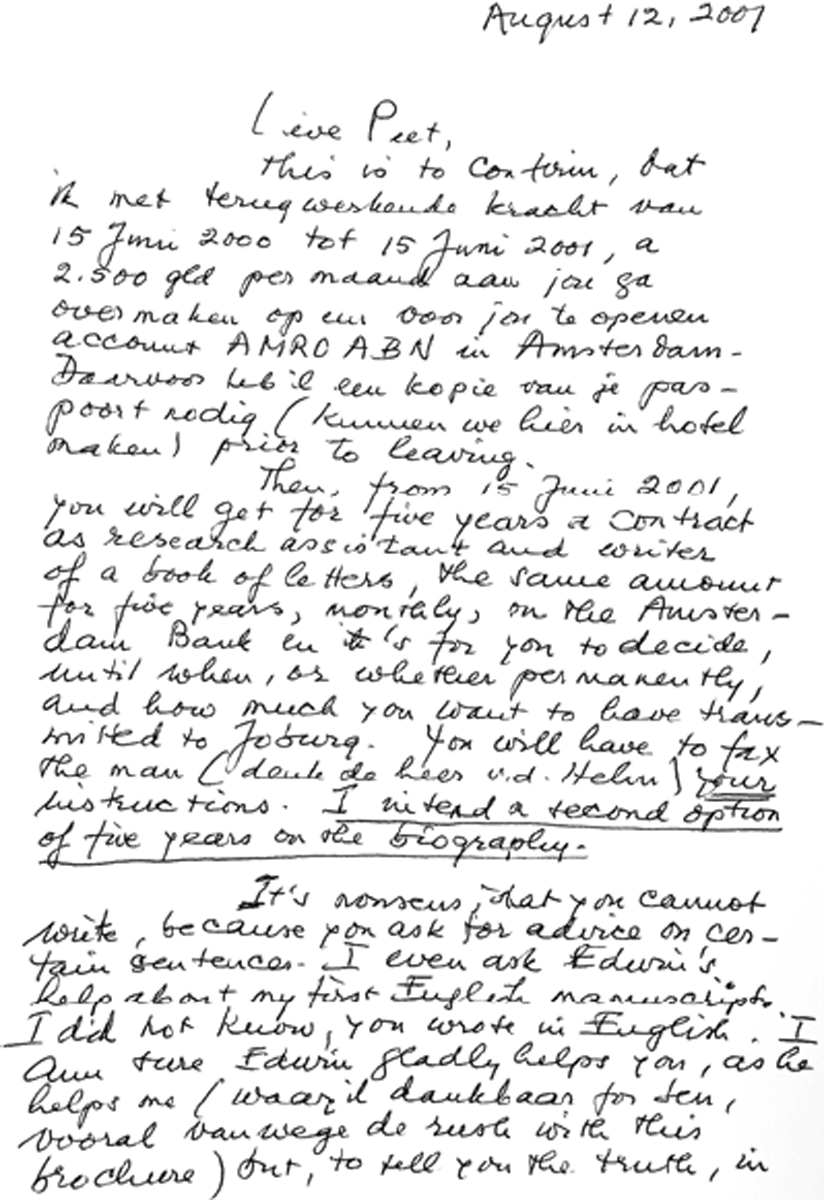 August 12, 2001
Lieve Peet,
this is to confirm, dat
ik met terugwerkende kracht van
15 Juni 2000 tot 15 Juni 2001, a
2.500 gld per maand aan jou ga
overmaken op een voor jou te openen
account AMRO ABN in Amsterdam-
Daarvoor heb ik een kopie van je pas-
poort nodig (kunnen we hier in hotel
maken) prior to leaving.
Then, from 15 Juni 2001,
you will get for five years a contract
as research assistant and writer
of a book of letters, the same amount
for five years, monthly, on the Amster-
dam Bank en it's for you to decide,
until when, or whether permanently,
and how much you want to have trans-
mitted to Joburg. You will have to fax
the man (denk de heer v.d. Helm) your
instructions. I intend a second option
of five years on the biography.
It's nonsens, that you cannot
write, because you ask for advice on cer-
tain sentences. I even ask Edwin's
help about my first English manuscripts.
I did not know, you wrote in English. I
am sure Edwin gladly helps you, as he
helps me (waar ik dankbaar for ben,
vooral vanwege de rush with this
brochure) but, to tell you the truth, in